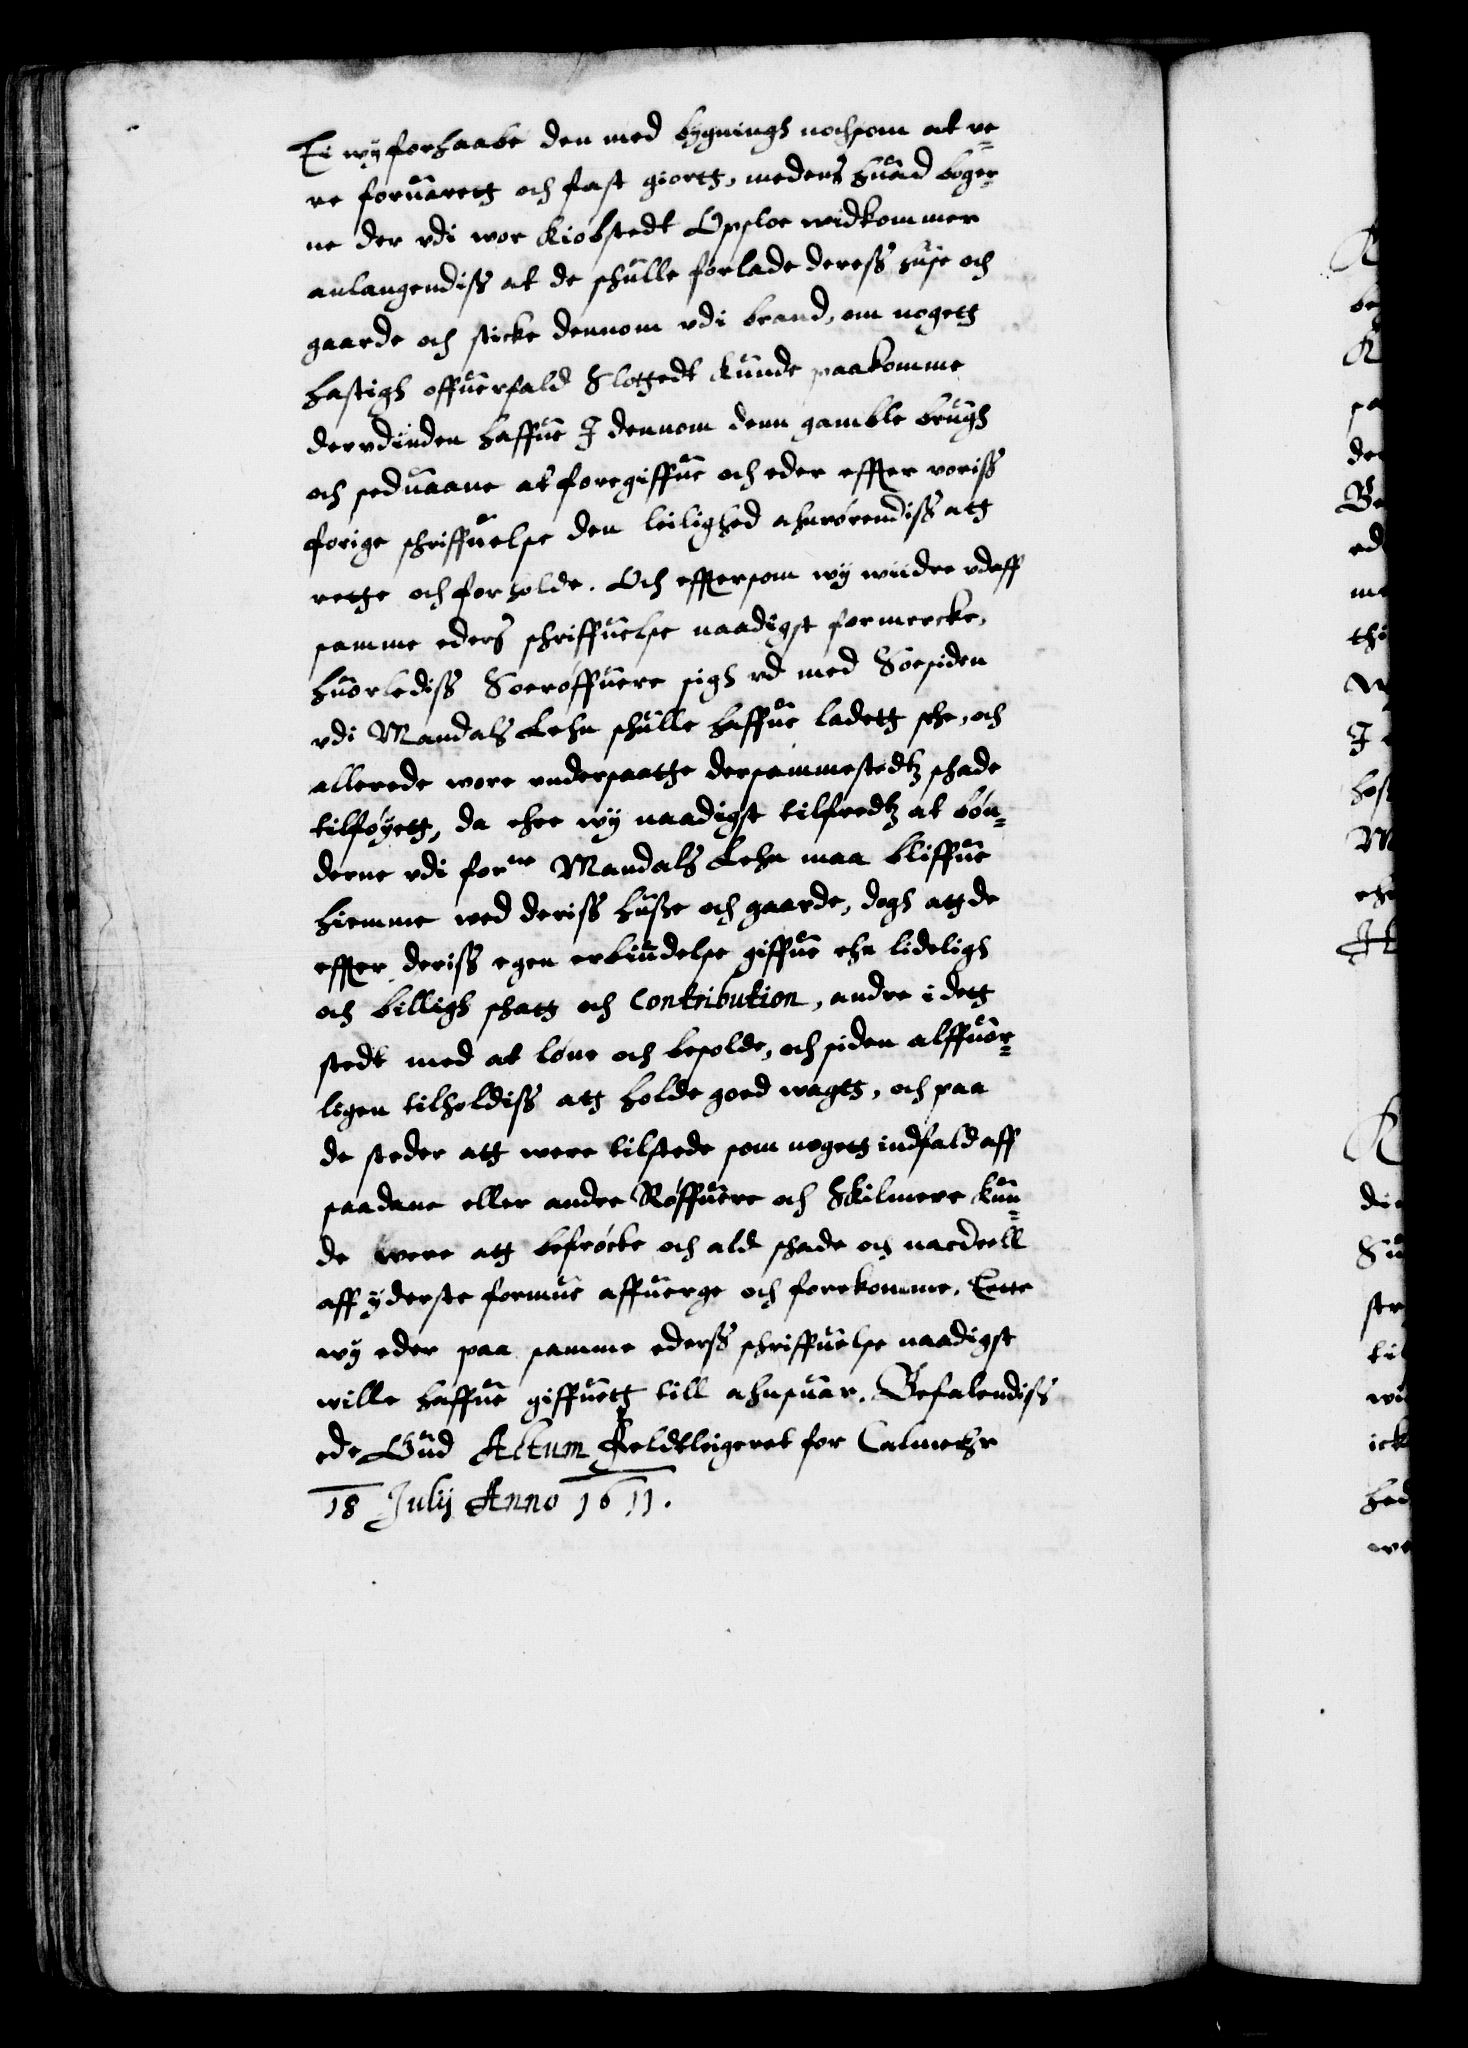 Ei wij forhaabe den med bygnings nochsom at ve=
re foruaretg och fast giortg, medens huad boger=
ne der vdi wor Kiobstedt Opsloe widkommer
anlangendiss at de schulle forlade deress huse och
gaarde och sticke dennom vdi brand, om nogetg
hastigh offuerfald Slotgedt kunde paakomme
dervdinden haffue I dennom denn gamble brugh
och seduaane at foregiffue och eder effter voriss
forige schriffuelse den leilighed ahnrørendiss atg
retge och forholde. Och efftersom wij wiidre vdaff
samme eders schriffuelse naadigst formercke,
huorlediss Søerøffuere sigh vd med Søesiden
vdi Mandals Lehn schulle haffue ladetg sehe, och
allerede wore vndersaatge dersammestedtz schade
tilføyetg, da ehre wij naadigst tilfredtz at bøn=
derne vdi for:ne Mandals Lehn maa bliffue
hiemme wed deriss husse och gaarde, dogh atg de
effter deriss egen erbiudelse giffue ehn lideligh
och billigh schatg och Contribution, andre i detg
stedt med at løne och besolde, och siden alffuor=
ligen tilholdiss atg holde goed wagtg, och paa
de steder atg were tilstede som nogetg indfald aff
saadane eller andre Røffuere och Skilmere kun=
de were atg befrøcte och ald schade och nacdeell
aff yderste formue affuerge och forekomme, Dette
wij eder paa samme ederss schriffuelse naadigst
wille haffue giffuetg till ahnsuar. Befalendiss
eder Gud Actum Feldtleigeret for Calmerhr
18 Julij Anno 1611.